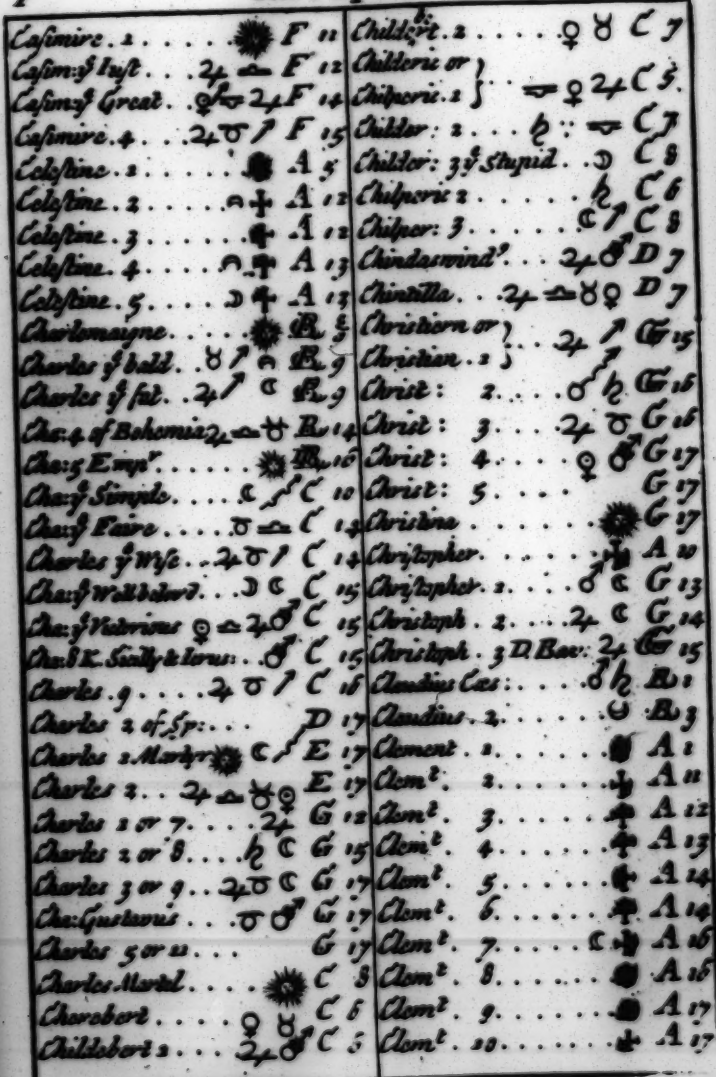 Casimire. 1 . . . . . ☀ F 11
Casim: yͤ Iust . . . ♃ ♎ F 12
Casim: yͤ Great . . ♃ F 14
Casimire. 4 . . . ♃ ♉ ↗ F 15
Celestine. 1 . . . . . A 5
Celestine. 2 . . . . ✝ A 12
Celestine. 3 . . . . . ✝ A 12
Celestine. 4 . . . . ✝ A 13
Celestine. 5 . . . . ☽ ✝ A 13
Charlemaigne . . . . ☀ B
Charles yͤ bald . . ♉ ↗ B 9
Charles yͤ fat . . ♃ ↗ ☾ B 9
Cha: 4 of Bohemia ♃ ♎ ♉ B 14
Cha: 5 Empʳ . . . . . ☀ B 16
Cha: yͤ Simple . . . . ☾ C 10
Cha: yͤ Faire . . . . ♉ ♎ C 14
Charles yͤ Wise . . ♃ ♉ ↗ C 14
Cha: yͤ Wellbelovd . . . ☽ ☾ C 15
Cha: yͤ Victorious ☉ ♎ ♃ ♂ C 15
Cha: 8 K. Sicilly & Ierus: . . ♂ C 15
Charles. 9 . . . . ♃ ♉ ↗ C 16
Charles 2 of Sp: . . . D 17
Charles 1 Martyr ☀ ☾ E 17
Charles 2 . . . ♃ ♎ ♉ ☉ E 17
Charles 1 or 7 . . . . ♃ G 12
Charles 2 or 8 . . . . ♄ ☾ G 15
Charles 3 or 9 . . ♃ ♉ ☾ G 17
Cha: Gustavus . . . ♉ ♂ G 17
Charles 5 or 11 . . . G 17
Charles Martel . . . . ☀ C 8
Cherebert . . . . ♀ ♉ C 6
Childebert 1 . . . . ♃ ♂ C 6
Childebͭ. 2 . . . . ♀ ♉ C 7
Childeric or }
Chilperic. 1 } . . ♀ ♃ C 5.
Childer: 2 . . . ♄ C 7
Childer: 3 yͤ Stupid . . ☽ C 8
Chilperic 2 . . . . . ♄ C 6
Chilper: 3 . . . . . ☾ ↗ C 8
Chindaswindˢ . . . ♃ ♂ D 7
Chintilla . . . ♃ ♎ ♉ ♀ D 7
Christiern or }
Christian. 1 } . . ♃ ↗ G 15
Christ: 2 . . . . ♂ ♄ G 16
Christ: 3 . . . . ♃ ♉ G 16
Christ: 4 . . . . ♀ ♂ G 17
Christ: 5 . . . . G 17
Christina . . . . . . ☀ G 17
Christopher . . . . . ✝ A 10
Christopher. 1 . . . . ♂ ☾ G 13
Christoph . 2 . . . . ♃ ☾ G 14
Christoph . 3 D. Bav: ♃ G 15
Claudius Cæs: . . . . ♂ ♄ B 1
Claudius. 2 . . . . . B 3
Clement . 1 . . . . . . A 1
Clemᵗ. 2 . . . . . . ✝ A 11
Clemᵗ. 3 . . . . . . ✝ A 12
Clemᵗ. 4 . . . . . . ✝ A 13
Clemᵗ. 5 . . . . . . ✝ A 14
Clemᵗ. 6 . . . . . . ✝ A 14
Clemᵗ. 7 . . . . . ☾ ✝ A 16
Clemᵗ. 8 . . . . . . A 16
Clemᵗ. 9 . . . . . . A 17
Clemᵗ. 10 . . . . . ✝ A 17